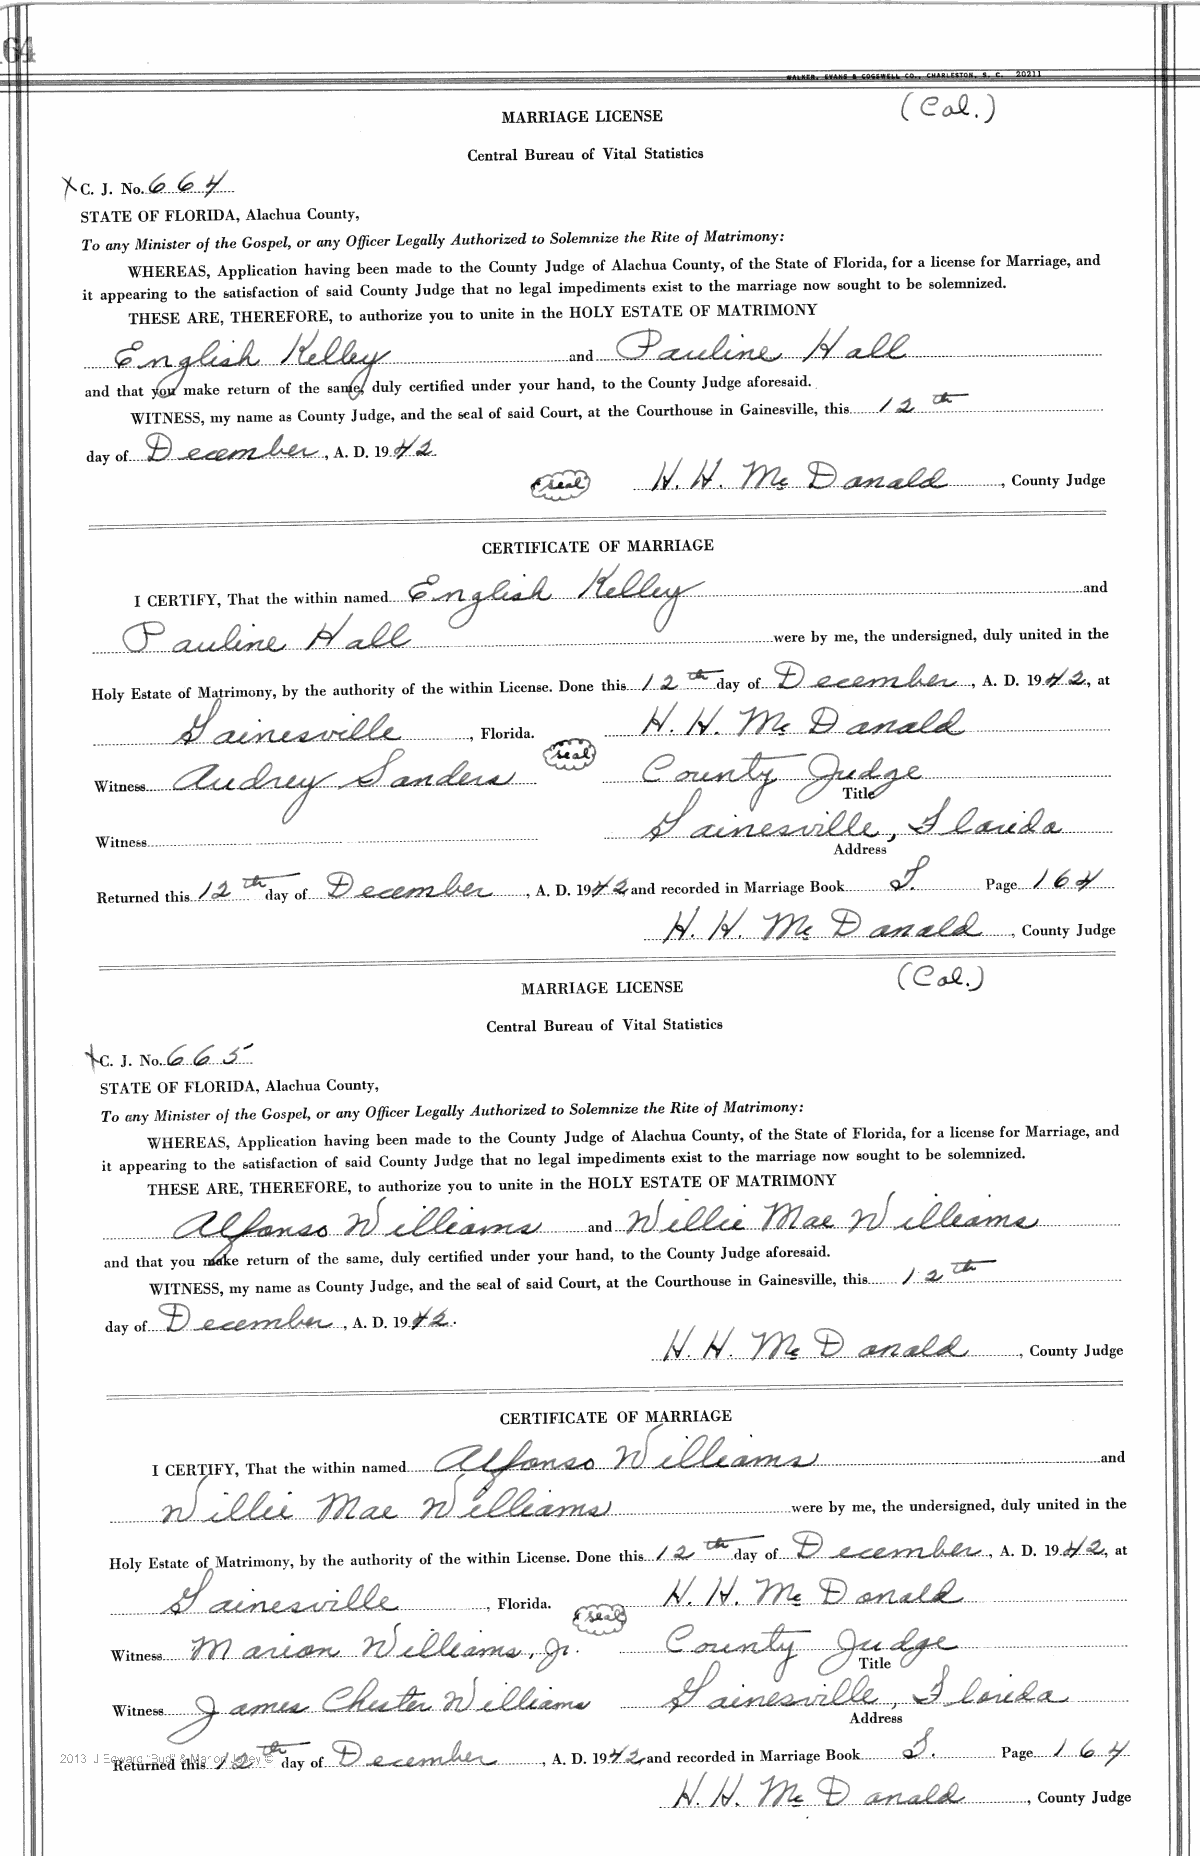 164
WALKER, EVANS & COGSWELL CO., CHARLESTON, S. C. 20211
MARRIAGE LICENSE (Col.)
Central Bureau of Vital Statistics
X C. J. No. 664
STATE OF FLORIDA, Alachua County,
To any Minister of the Gospel, or any Officer Legally Authorized to Solemnize the Rite of Matrimony:
WHEREAS, Application having been made to the County Judge of Alachua County, of the State of Florida, for a license for Marriage, and
it appearing to the satisfaction of said County Judge that no legal impediments exist to the marriage now sought to be solemnized.
THESE ARE, THEREFORE, to authorize you to unite in the HOLY ESTATE OF MATRIMONY
English Kelley and Pauline Hall
and that you make return of the same, duly certified under your hand, to the County Judge aforesaid.
WITNESS, my name as County Judge, and the seal of said Court, at the Courthouse in Gainesville, this 12th
day of December, A. D. 1942.
seal H. H. McDonald, County Judge
CERTIFICATE OF MARRIAGE
I CERTIFY, That the within named English Kelley and
Pauline Hall were by me, the undersigned, duly united in the
Holy Estate of Matrimony, by the authority of the within License. Done this 12th day of December, A. D. 1942, at
Gainesville, Florida. H. H. McDonald
seal
Witness Audrey Sanders County Judge
Title
Witness Gainesville, Florida
Address
Returned this 12th day of December, A. D. 1942 and recorded in Marriage Book Page 164
H. H. McDonald, County Judge
MARRIAGE LICENSE (Col.)
Central Bureau of Vital Statistics
X C. J. No. 665
STATE OF FLORIDA, Alachua County,
To any Minister of the Gospel, or any Officer Legally Authorized to Solemnize the Rite of Matrimony:
WHEREAS, Application having been made to the County Judge of Alachua County, of the State of Florida, for a license for Marriage, and
it appearing to the satisfaction of said County Judge that no legal impediments exist to the marriage now sought to be solemnized.
THESE ARE, THEREFORE, to authorize you to unite in the HOLY ESTATE OF MATRIMONY
Alfonso Williams and Willie Mae Williams
and that you make return of the same, duly certified under your hand, to the County Judge aforesaid.
WITNESS, my name as County Judge, and the seal of said Court, at the Courthouse in Gainesville, this 12th
day of December, A. D. 1942.
H. H. McDonald, County Judge
CERTIFICATE OF MARRIAGE
I CERTIFY, That the within named Alfonso Williams and
Willie Mae Williams were by me, the undersigned, duly united in the
Holy Estate of Matrimony, by the authority of the within License. Done this 12th day of December, A. D. 1942, at
Gainesville, Florida. H. H. McDonald
seal
Witness Marion Williams, Jr. County Judge
Title
Witness James Chester Williams Gainesville, Florida
Address
2013 J Edward "Bud" & Marion ©
Returned this 12th day of December, A. D. 1942 and recorded in Marriage Book Page 164
H. H. McDonald, County Judge